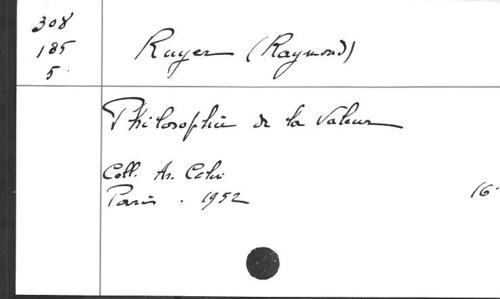 308
185
5.
Ruyer (Raymond)
Philosophie de la Valeur
Coll. Ar. Colin
Paris . 1952
16°